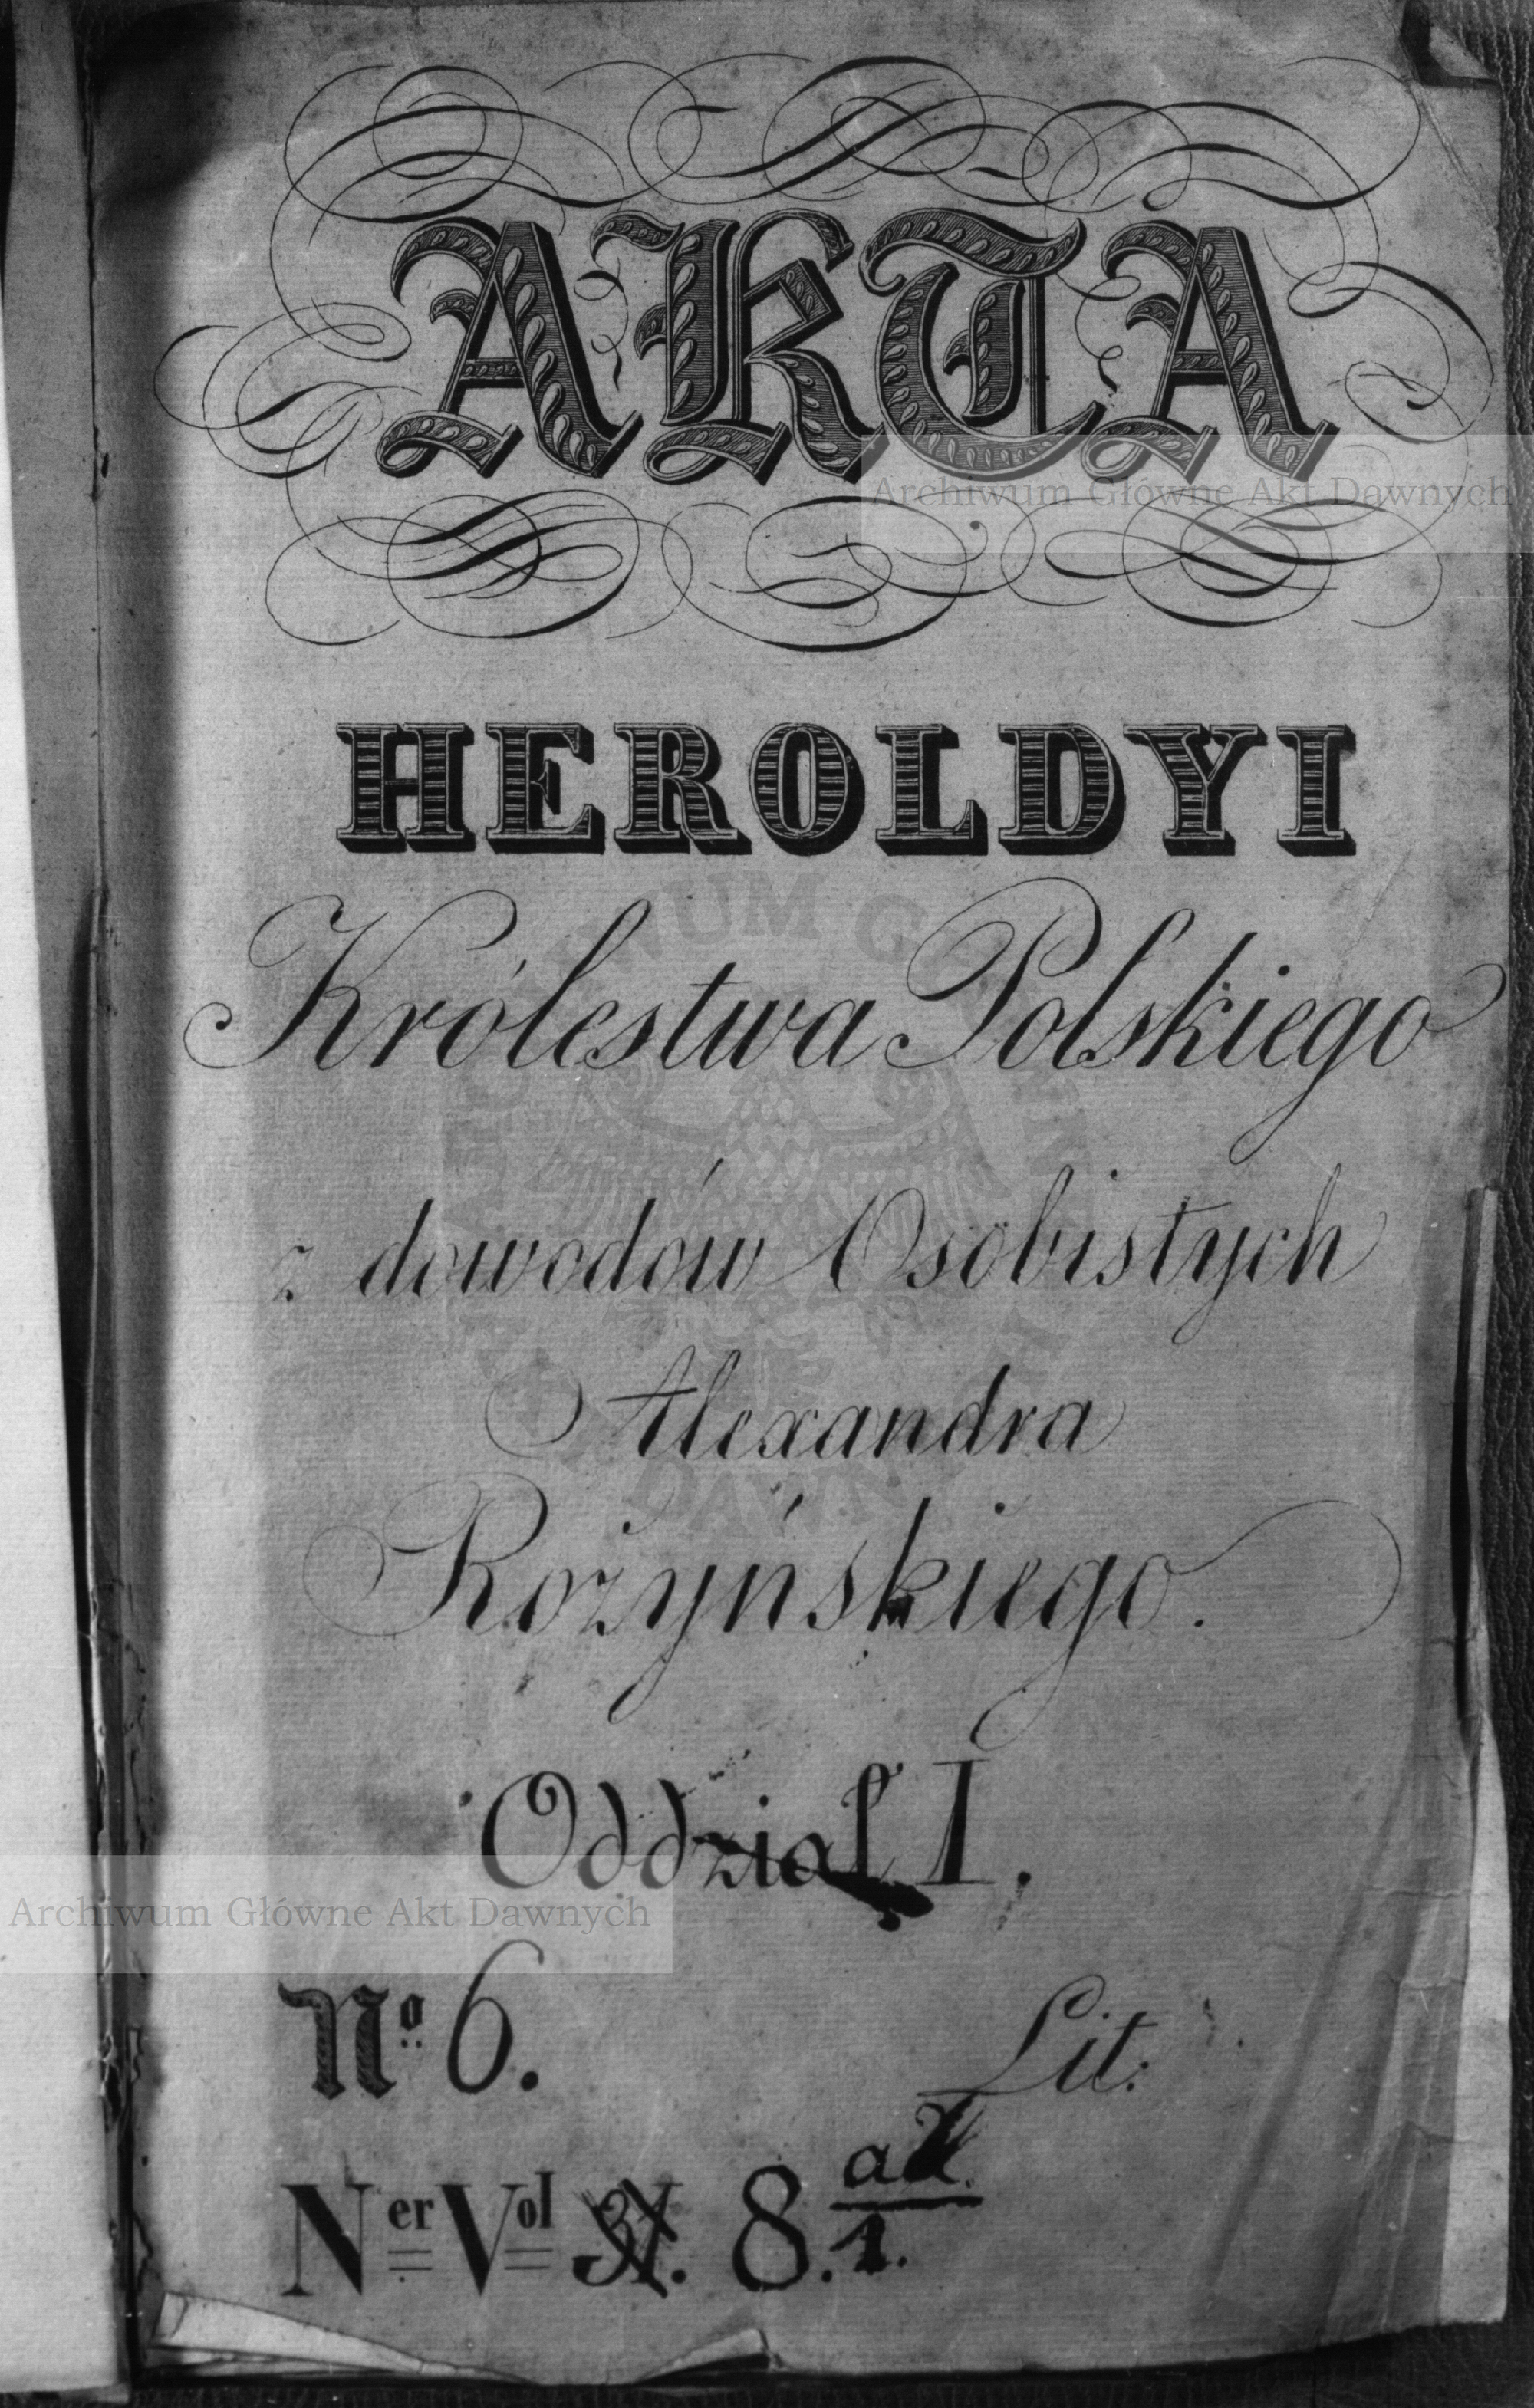 AKTA
Archiwum Główne Akt Dawnych
HEROLDYI
Królestwa Polskiego
z dowodów Osobistych
Alexandra
Rożyńskiego.
Oddział I.
Archiwum Główne Akt Dawnych
No 6.
Lit:
Ner Vol 8. ad 1.